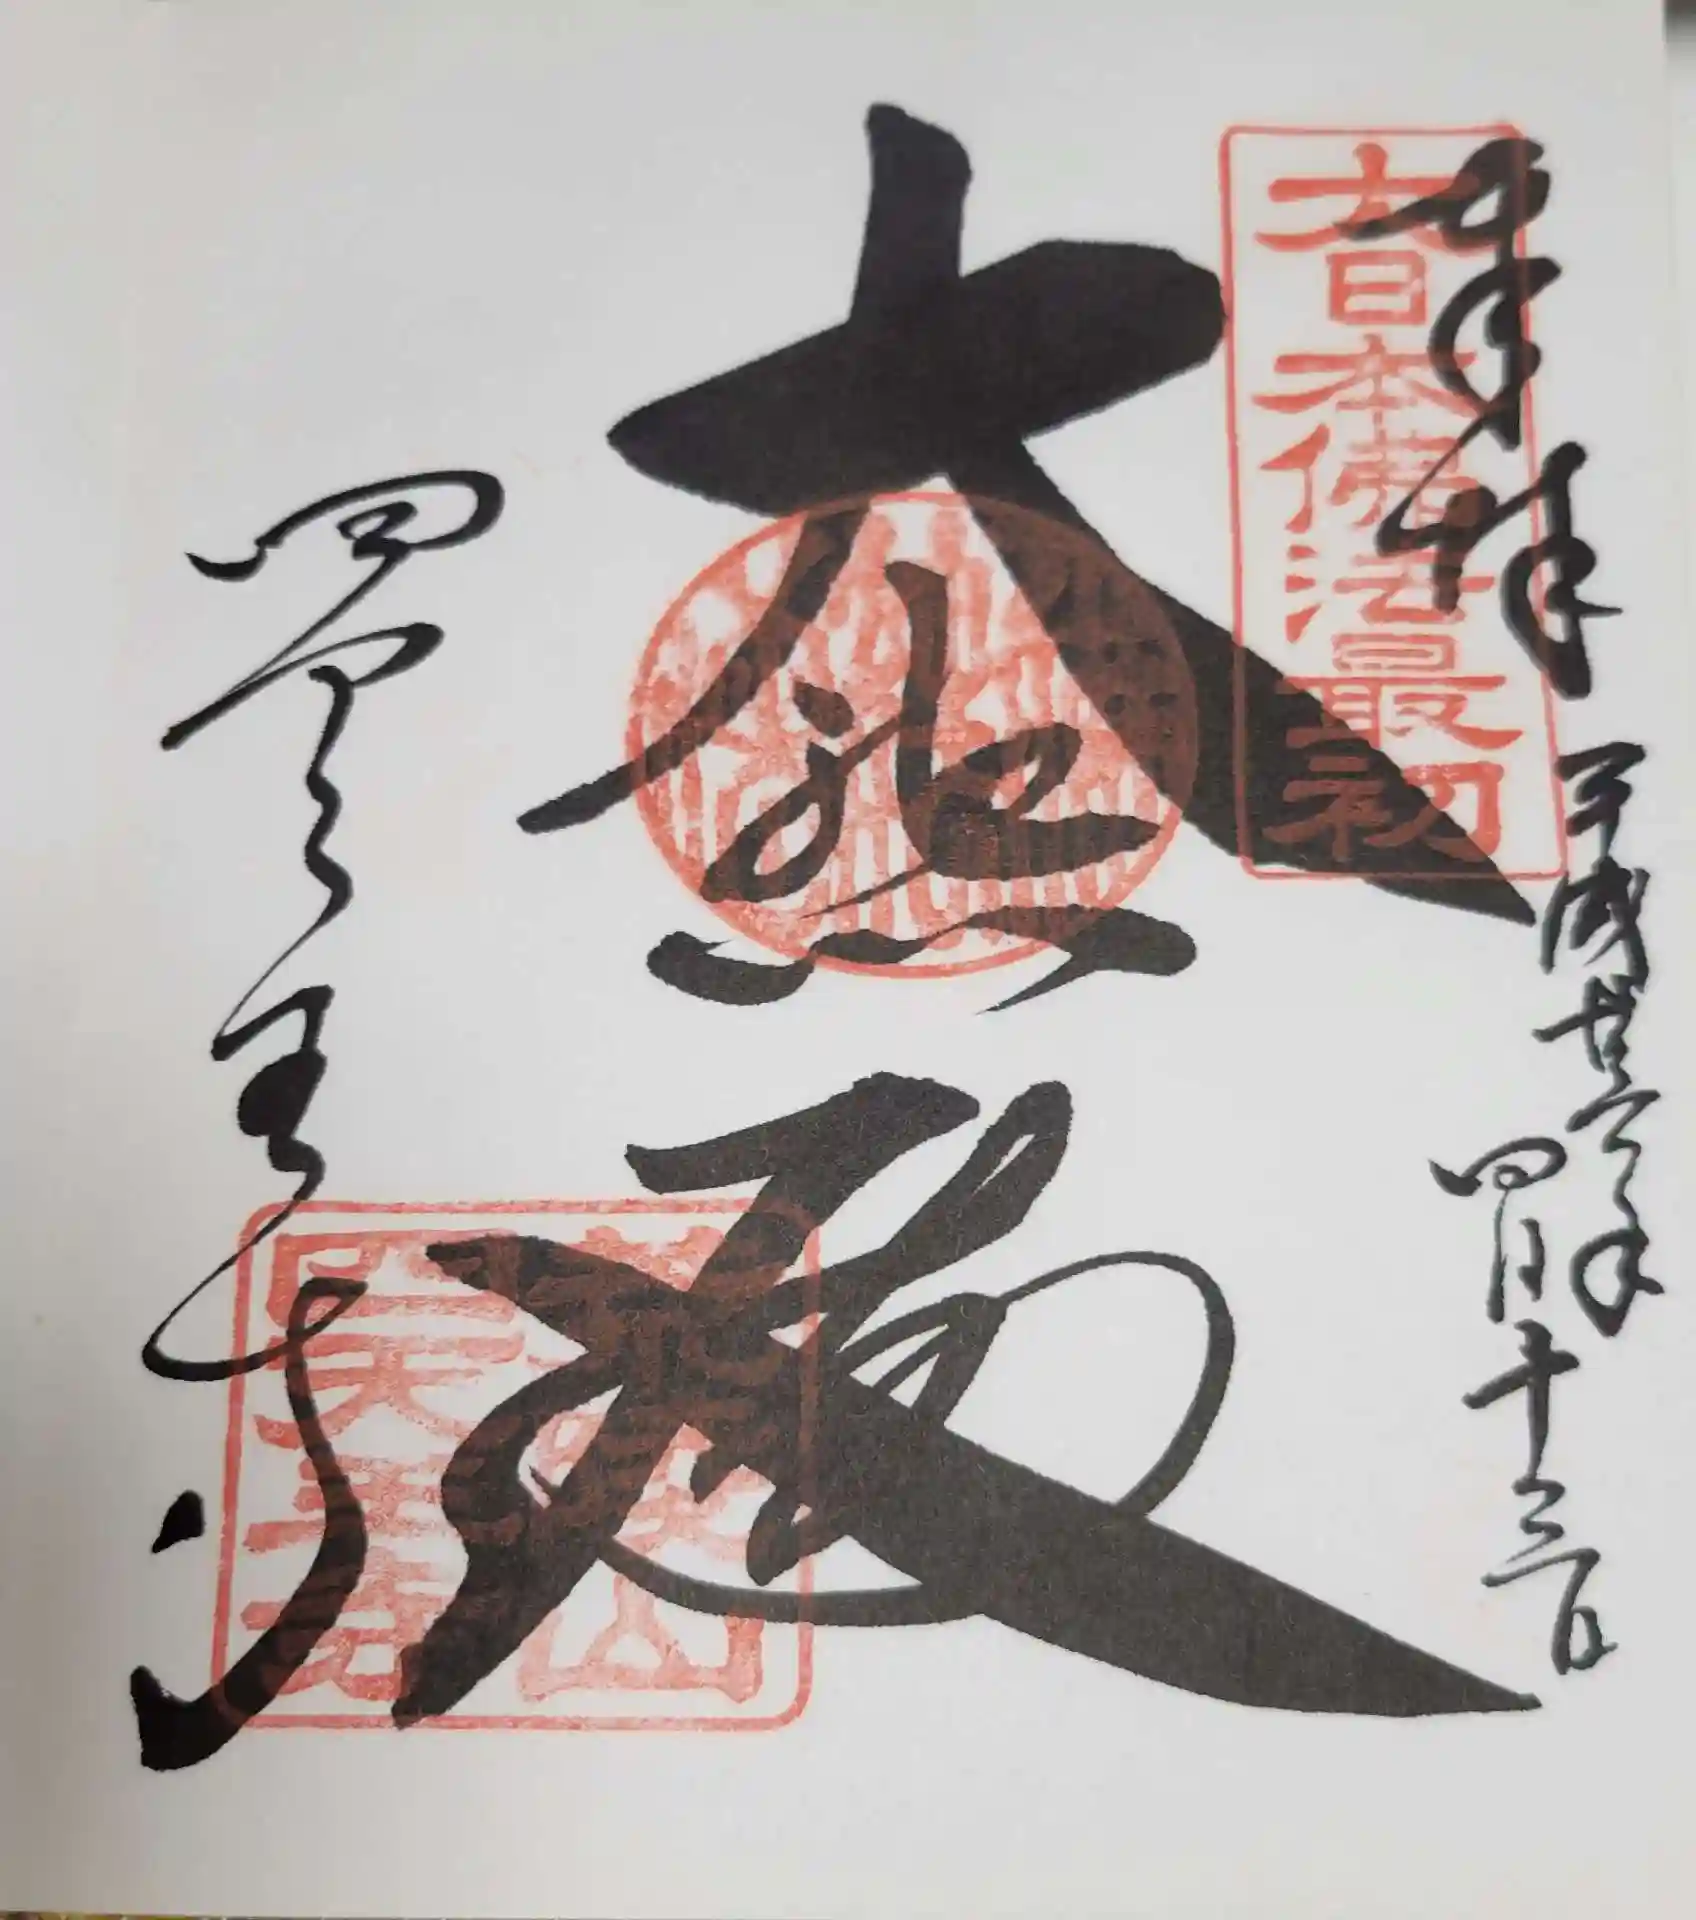 奉拝
平成廿二年
四月十三日
大日本佛法最初
大悲殿
四天王寺
荒陵山
四天王寺